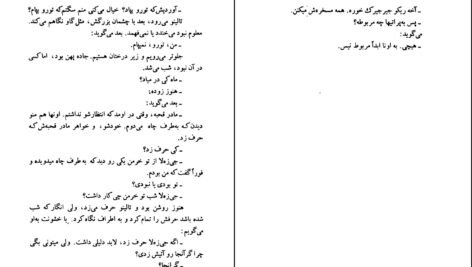 ـ آخه ریکو جیرجیرک خوره. همه مسخره‌ش میکنن.
ـ پس به‌پرانیها چه مربوطه؟
ـ هیچی. به اونا ابداً مربوط نیس.
ـ آوردیش‌که تورو بپاد؟ خیال می‌کنی منم سگتم‌که تورو بپام؟
تالینو می‌رود، بعد با چشمان بزرگش، مثل‌گاو نگاهم می‌کند.
معلوم نبود می‌خندد یا نمی‌فهمد. بعد می‌گوید:
ـ من، تورو، نمیپام.
جلوتر می‌رویم و زیر درختان هستیم. جاده پهن بود، اما کسی
در آن نبود، شب می‌شد.
ـ ماه کی در میاد؟
ـ هنوز زوده؛
بعد می‌گوید:
ـ مادر قحبه، وقتی در اومد که انتظارشو نداشتم. اونها هم منو
دیدن‌که به‌طرف چاه می‌دوم. خودشو، و خواهر مادر قحبه‌ش‌که
حرف زد.
ـ کی حرف زد؟
ـ جی‌زه‌لا از تو خرمن یکی رو دید که به‌طرف چاه میدویده و
فوراً گفت‌که من بودم.
ـ تو بودی یا نبودی؟
ـ جی‌زه‌لا شب تو خرمن چی‌کار داشت؟
هنوز روشن بود و تالینو حرف می‌زد، ولی انگار که شب
شده باشد حرفش را تمام کرد و به اطراف نگاه کرد. با خشونت به‌او
می‌گویم:
ـ اگه جی‌زه‌لا حرف زد، لابد دلیلی داشت. ولی میتونی بگی
چرا گرآنجا رو آتیش زدی؟
ـ گرآنجا؟